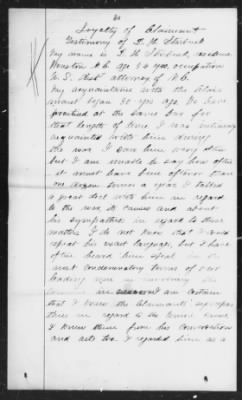 Loyalty of Claimant
Testimony of D. H. Starbuck
My name is D. H. Starbuck, residence
Winston N.C. age 54 yrs, occupation
U. S. Dist attorney of N.C.
My acquaintance with the claim
amant began 30 yrs ago. We have
practiced at the same bar for
that length of time. I was intimately
acquainted with him during
the war. I saw him very often
but I am unable to say how often
it must have been oftener than
one dozen times a year. I talked
a great deal with him in regard
to the war its causes and about
his sympathies in regard to those
matters. I do not know that I could
repeat his exact language, but I have
often heard him speak in the
most condemnatory terms of our
leading men in
I am certain
that I knew the claimants sympa
thies in regard to the Union cause
I knew them from his conversation
and acts too I regarded him as a